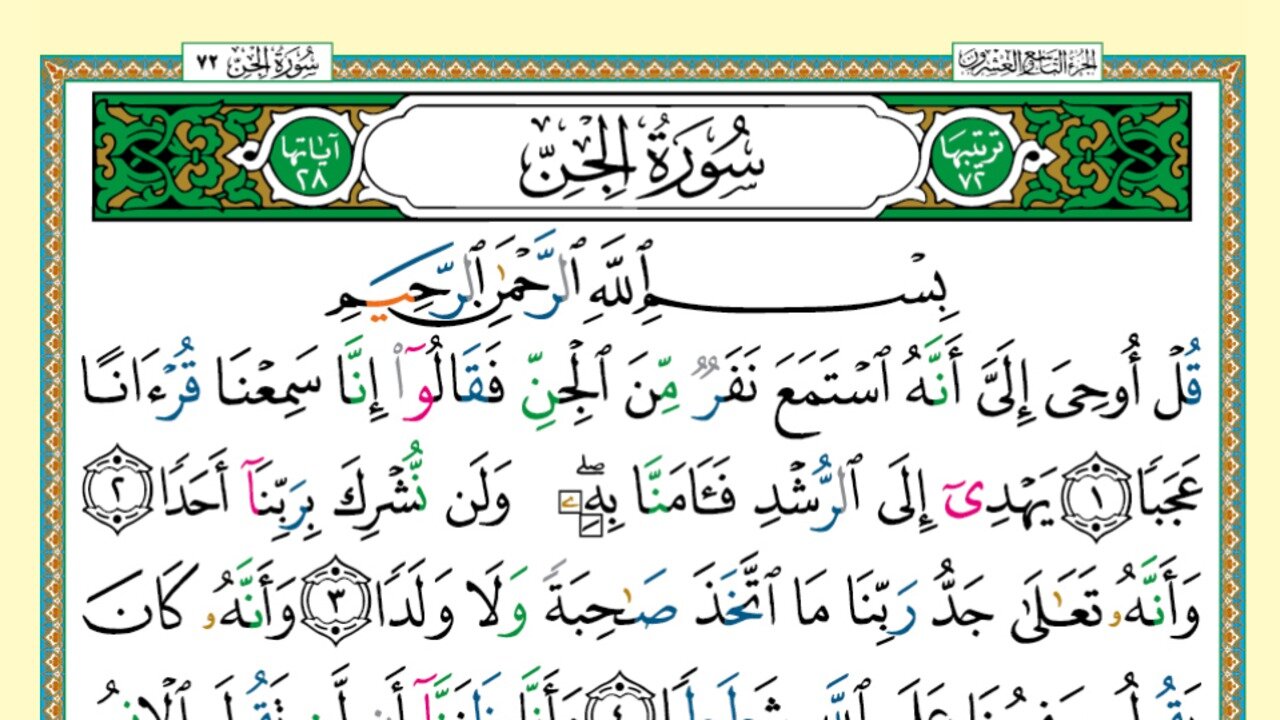 الجزء التاسع والعشرون
سُورَةُ الجِنّ ٧٢
ترتيبها ٧٢
سُورَةُ الجِنِّ
آياتها ٢٨
بِسْمِ ٱللَّهِ ٱلرَّحْمَٰنِ ٱلرَّحِيمِ
قُلْ أُوحِىَ إِلَىَّ أَنَّهُ ٱسْتَمَعَ نَفَرٌ مِّنَ ٱلْجِنِّ فَقَالُوٓا۟ إِنَّا سَمِعْنَا قُرْءَانًا
عَجَبًا ١ يَهْدِىٓ إِلَى ٱلرُّشْدِ فَـَٔامَنَّا بِهِۦ ۖ وَلَن نُّشْرِكَ بِرَبِّنَآ أَحَدًا ٢
وَأَنَّهُۥ تَعَٰلَىٰ جَدُّ رَبِّنَا مَا ٱتَّخَذَ صَٰحِبَةً وَلَا وَلَدًا ٣ وَأَنَّهُۥ كَانَ
يَقُولُ سَفِيهُنَا عَلَى ٱللَّهِ شَطَطًا ٤ وَأَنَّا ظَنَنَّآ أَن لَّن تَقُولَ ٱلْإِنسُ